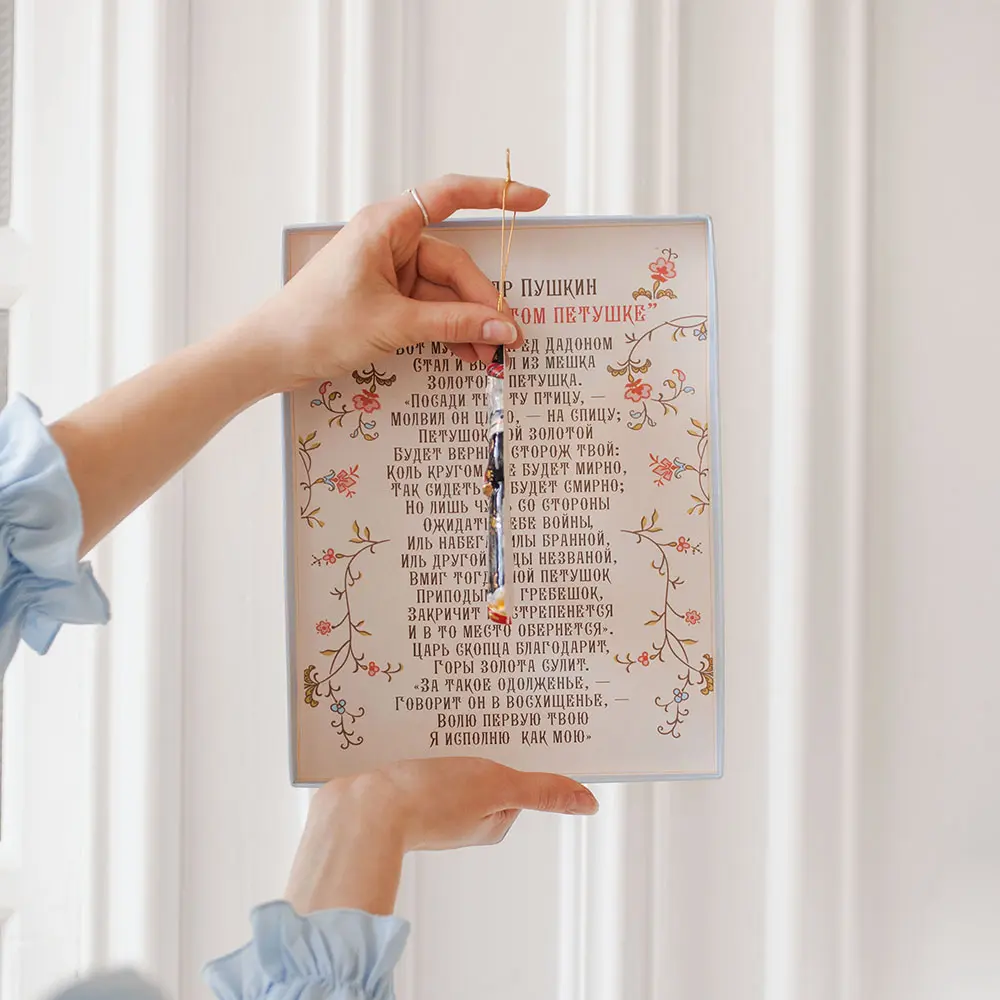 ПУШКИН
ПЕТУШКЕ”
ВОТ ДАДОНОМ
СТАЛ И ИЗ МЕШКА
ПЕТУШКА.
«ПОСАДИ ПТИЦУ, —
МОЛВИЛ ОН — НА СПИЦУ;
ЗОЛОТОЙ
БУДЕТ СТОРОЖ ТВОЙ:
КОЛЬ КРУГОМ БУДЕТ МИРНО,
ТАК СИДЕТЬ БУДЕТ СМИРНО;
НО ЛИШЬ СО СТОРОНЫ
ОЖИДАТЬ ВОЙНЫ,
ИЛЬ БРАННОЙ,
ИЛЬ ДРУГОЙ НЕЗВАНОЙ,
ВМИГ ПЕТУШОК
ГРЕБЕШОК,
ЗАКРИЧИТ
И В ТО МЕСТО ОБЕРНЕТСЯ».
ЦАРЬ СКОПЦА БЛАГОДАРИТ,
ГОРЫ ЗОЛОТА СУЛИТ.
«ЗА ТАКОЕ ОДОЛЖЕНЬЕ, —
ГОВОРИТ ОН В ВОСХИЩЕНЬЕ, —
ВОЛЮ ПЕРВУЮ ТВОЮ
Я ИСПОЛНЮ КАК МОЮ»